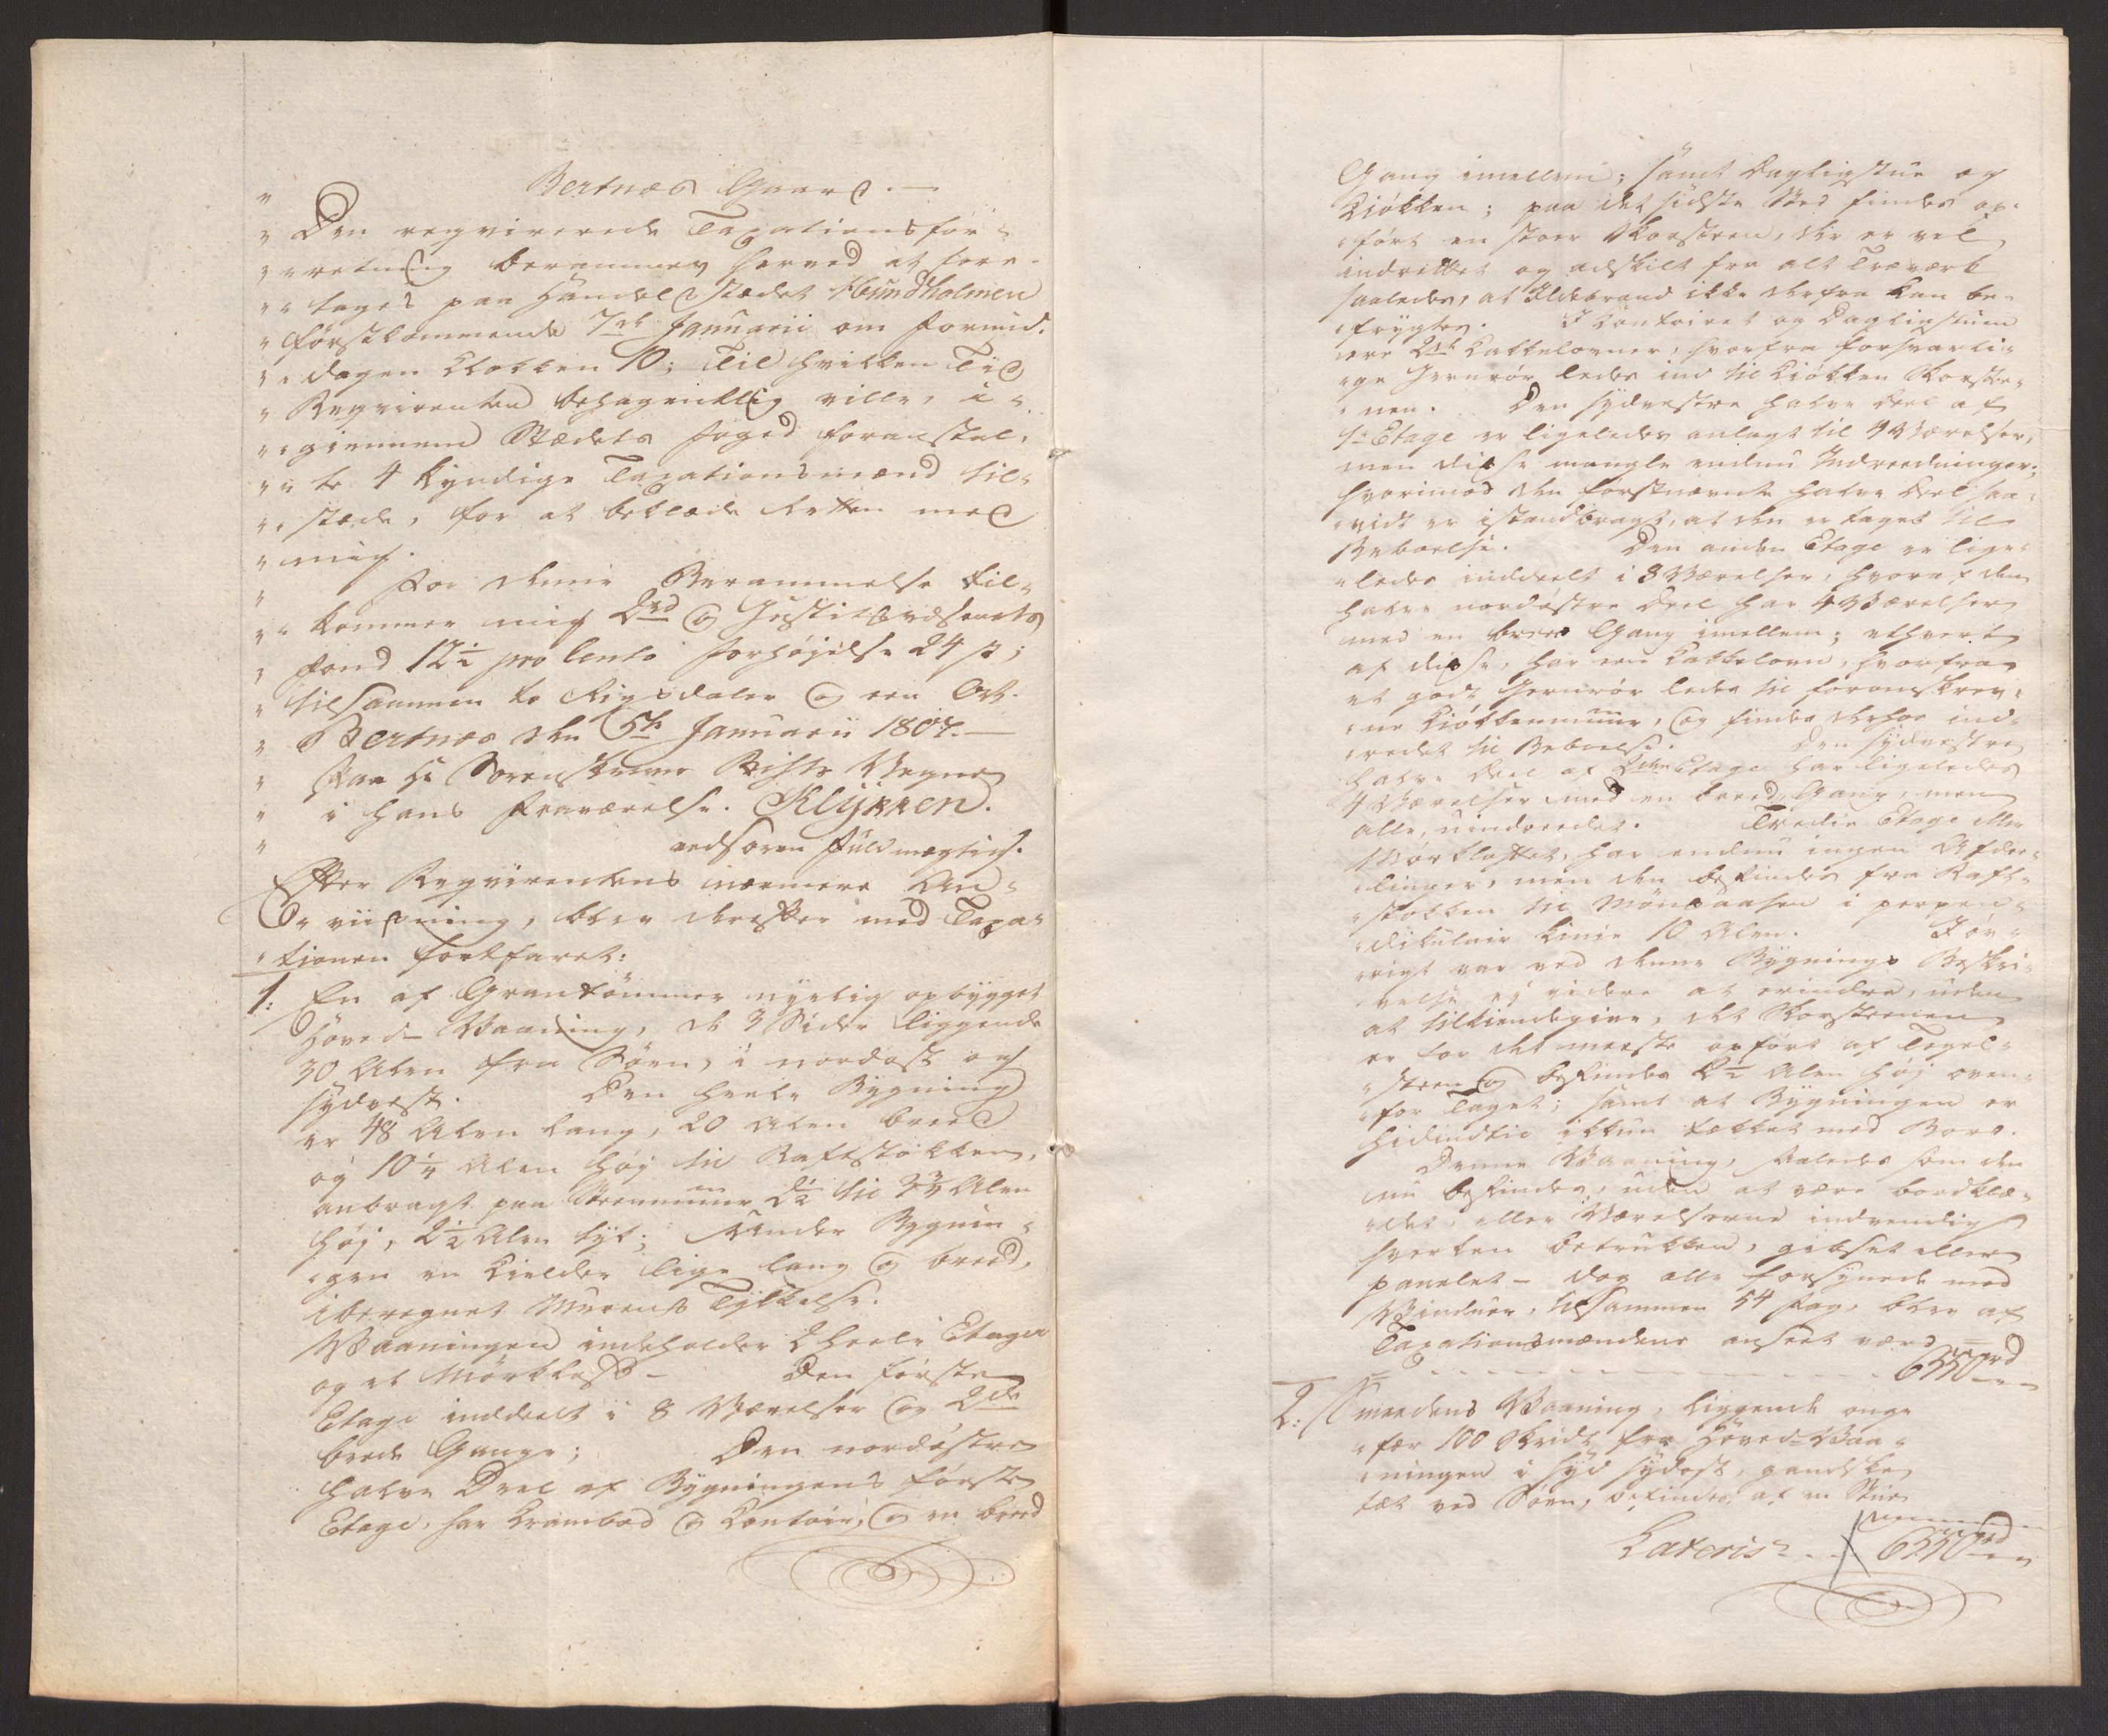 " Bertnæs Gaard. —
" Den reqvirerede Taxationsfor-
" "retning berammes herved at fore-
" "tages paa Handelsstædet Hundholmen
" førstkommende 7de Januarii om Formid-
" "dagen Klokken 10; Til hvilken Tid
" Reqvirenten behagentlig ville, i-
" "giennem Stædets Foged foranstal-
" "te 4 kyndige Taxationsmænd til-
" "stæde, for at beklæde Retten med
" mig.
" For denne Berammelse til-
" "kommer mig 2rd og Justitsvæsenets
" Fond 12½ pro Cento Forhøjelse 24 s;
" tilsammen to Rigsdaler og een Ort.
" Bertnæs den 5te Januarii 1807. —
" Paa Hr Sorenskriver Rists Vegne
" i hans Fraværelse. Klykken.
" edsoren Fuldmægtig.
Efter Reqvirentens nærmere An-
"viisning, blev derefter med Taxa-
"tionen fortfaret:
1: En af Grantømmer nyelig opbygget
Hoved-Vaaning, de 3 Sider liggende
30 Alen fra Søen, i nordost og
sydvest. Den heele Bygning
er 48 Alen lang, 20 Alen breed
og 10¼ Alen høj til Raftstokken,
anbragt paa Steenmuur 2½ til 3¾ Alen
høj, 2½ Alen tyk; Under Bygnin-
"gen en Kielder lige lang og breed,
iberegnet Murens Tykkelse.
Vaaningen indeholder 2 heele Etager
og et Mørkloft - Den første
Etage inddeelt i 8 Værelser og 2de
brede Gange; Den nordøstre
halve Deel af Bygningens første
Etage, har Krambod og Contoir, og en breed
Gang imellem; samt Dagligstue og
Kiøkken; paa det sidste Sted findes op-
"ført en stoer Skorsteen, der er vel
indrettet og adskilt fra alt Træværk
saaledes, at Ildebrand ikke derfra kan be-
"frygtes. I Contoiret og Dagligstuen
ere 2de Kakkelovner, hvorfra forsvarli-
"ge Jernrør ledes ind til Kiøkken Skorste-
"nen. Den sydvestre halve Deel af
1te Etage er ligeledes anlagt til 4 Værelser,
men disse mangle endnu Indreedninger;
hvorimod den førstnævnte halve Deel saa-
"vidt er istandbragt, at den er taget til
Beboelse. Den anden Etage er lige-
"ledes inddeelt i 8 Værelser, hvoraf den
halve nordøstre Deel har 4 Værelser
med en breed Gang imellem; ethvert
af disse, har een Kakkelovn, hvorfra
et godt Jernrør ledes til foromskrev-
"ne Kiøkkenmuur, og findes derhos ind-
"redet til Beboelse. Den sydvestre
halve Deel af 2den Etage har ligeledes
4 Værelser med en breed Gang, men
alle, uindreedet. Tredie Etage eller
Mørkloftet, har endnu ingen Afdee-
"linger, men den befindes fra Raft-
"stokken til Mønsaasen i perpen-
"dikulair Linie 10 Alen. I øv-
"rigt var ved denne Bygnings Beskri-
"velse ej videre at erindre, uden
at tilkiendegive, det Skorsteenen
er for det meeste opført af Tegel-
"steen og befindes 2½ Alen høj oven-
"for Taget; samt at Bygningen er
hidindtil ikkun tækket med Bord.
Denne Vaaning, saaledes som den
nu befindes, uden at være bordklæ-
"det, eller Værelserne indvendig
hverken betrukken, gibset eller
panelet - dog alle forsynede med
Vinduer, tilsammen 54 Fag, blev af
Taxationsmændene anseet værd
6550rd
2: Smedens Vaaning, liggende onge-
"fær 100 Skridt fra Hoved-Vaa-
"ningen i Syd sydost, gandske
tæt ved Søen, befindes af en Stue
Lateris - 6550rd